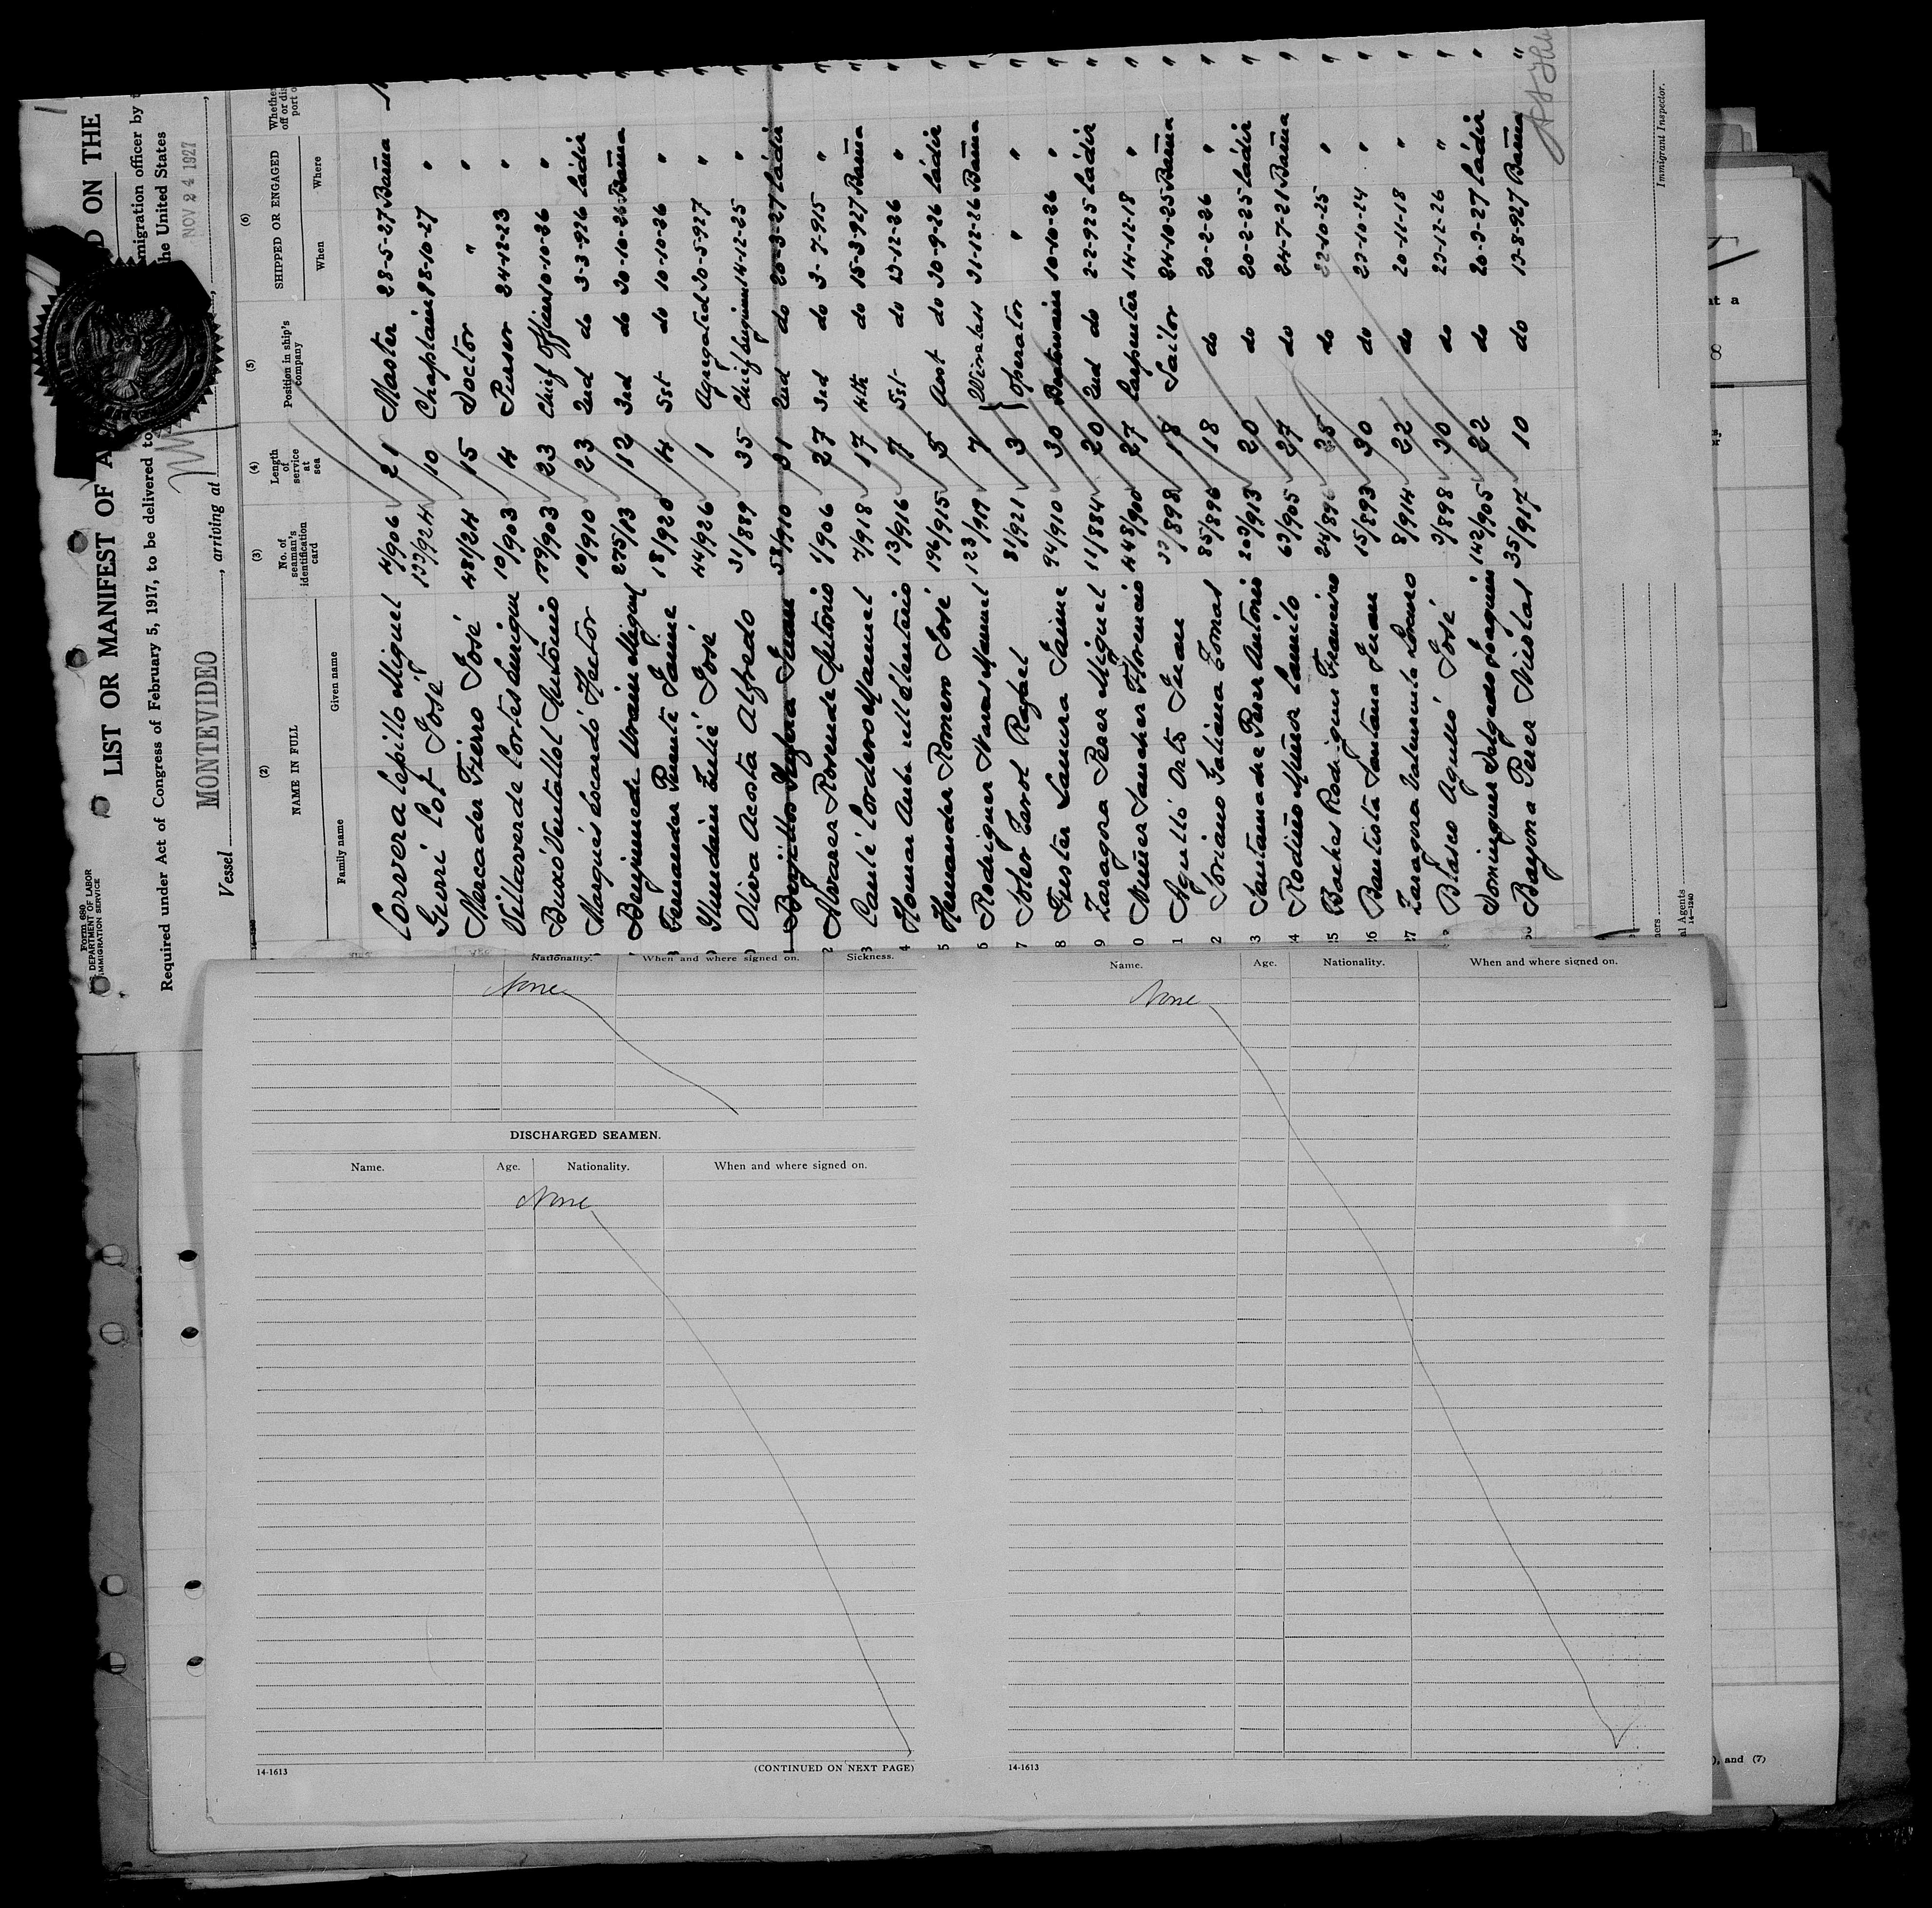 Form 680
DEPARTMENT OF LABOR
IMMIGRATION SERVICE
LIST OR MANIFEST OF A
D ON THE
Required under Act of Congress of February 5, 1917, to be delivered to
migration officer by
the United States
Vessel
MONTEVIDEO
, arriving at
NOV 24 1927
(2) (3) (4) (5) (6)
NAME IN FULL No. of seaman's identification card Length of service at sea Position in ship's company SHIPPED OR ENGAGED
Family name Given name When Where
Corvera Cepillo Miguel 4/906 21 Master 28-5-27 Barña
Gurri Cot José 133/924 10 Chaplain 28-10-27 "
Mercader Fierro José 481/24 15 Doctor " "
Villaverde Cortes Enrique 10/903 4 Purser 24-12-23 "
Buxó Ventallol Antonio 179/903 23 Chief Officer 10-10-26 "
Marqués Escardó Hector 10/910 23 2nd do 3-3-926 Cádiz
Benjumeda Miguel 275/13 12 3rd do 30-10-26 Barña
Fernandez Puente Jaime 18/920 4 do 10-10-26 "
José 44/926 1 Agregated 30-5-927 "
Oliva Acosta Alfredo 31/889 35 Chief Engineer 14-12-25 "
Juan 58/910 31 2nd do 20-3-27 Cádiz
Alvarez Rosende Antonio 1/906 27 3rd do 3-7-915 "
Canle Cordero Manuel 7/918 17 4th do 15-3-927 Barña
13/916 7 do 23-12-26 "
Hernandez Romero José 196/915 5 Asst do 30-9-26 Cádiz
Rodriguez Manuel 123/919 7 Wireless 31-12-26 Barña
Soler Rafael 81/921 3 Operator " "
Fuster Jaime 94/910 30 Boatswain 10-10-26 "
Zaragoza Perez Miguel 11/884 20 2nd do 2-2-925 Cádiz
Nuñez Sanchez Florencio 448/900 27 Carpenter 14-12-18 "
Agulló Orts Juan 33/898 18 Sailor 24-10-25 Barña
Soriano Galiana Tomas 85/896 18 do 20-2-26 "
Santamaria Perez Antonio 203/913 20 do 20-2-25 Cádiz
Rodiño Muñoz Camilo 63/905 27 do 24-7-21 Barña
Rodriguez Francisco 24/896 25 do 22-10-25 "
Bautista Santana Juan 15/893 30 do 23-10-24 "
Zaragoza Valenzuela 8/914 22 do 20-11-18 "
Blasco Agulló José 3/898 30 do 23-12-26 "
Dominguez Delgado Joaquin 142/905 22 do 20-9-27 Cádiz
Bayona Perez Nicolas 35/917 10 do 13-8-927 Barña
Immigrant Inspector.
Nationality. When and where signed on. Sickness.
None
DISCHARGED SEAMEN.
Name. Age. Nationality. When and where signed on.
None
14-1613
(CONTINUED ON NEXT PAGE)
Name. Age. Nationality. When and where signed on.
None
14-1613
), and (7)